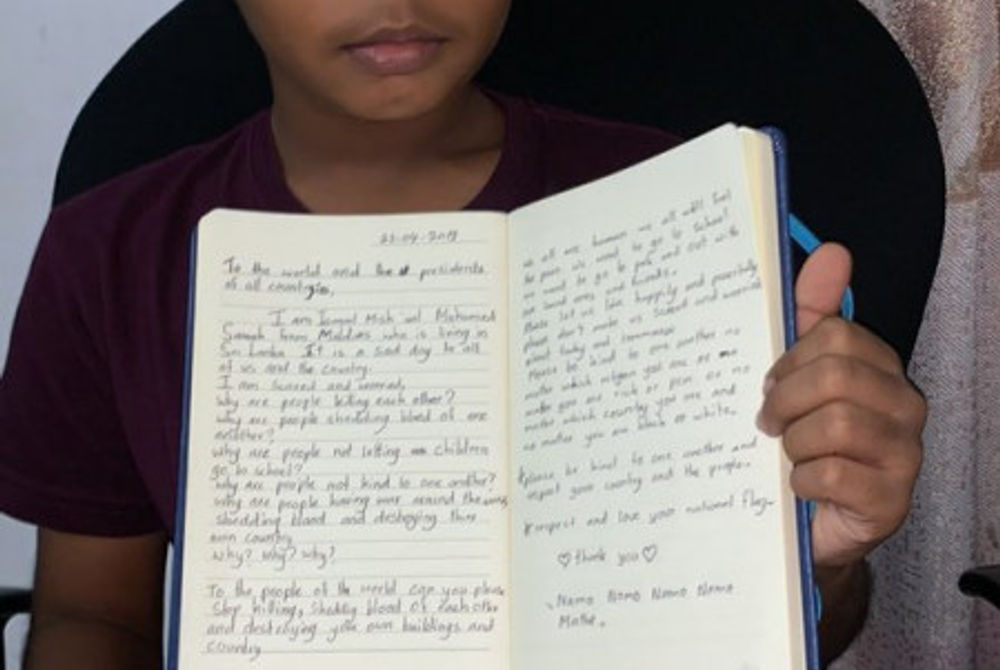 To the world and the presidents
of all
I am
from Maldives who is living in
Sri Lanka. It is a sad day to all
of us and the country.
I am Scared and
why are people killing each other?
why are people shedding blood of one
another?
why are people not letting children
go to school?
why are people not kind to one another?
why are people having war around the
shedding blood and destroying
own country
why? why? why?
To the people of the world can you please
stop killing, shedding blood of each other
and destroying your own buildings and
country
we all are human we all will feel
the pain. we want to go to school
we want to go to park and out with
our loved ones and friends.
Please let us live happily and peacefully
please don't make us scared and
about today and
Please be kind to one another no
matter which you are or no
matter you are rich or poor or no
matter which country you are and
no matter you are black or white.
please be kind to one another and
respect your country and the people.
respect and love your national flag.
♡ thank you ♡